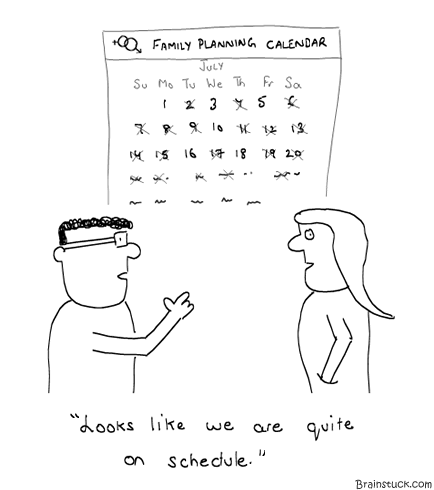 FAMILY PLANNING CALENDAR
JULY
Su Mo Tu We Th Fr Sa
1 2 3 4 5 6
7 8 9 10 11 12 13
14 15 16 17 18 19 20
"Looks like we are quite
on schedule."
Brainstuck.com